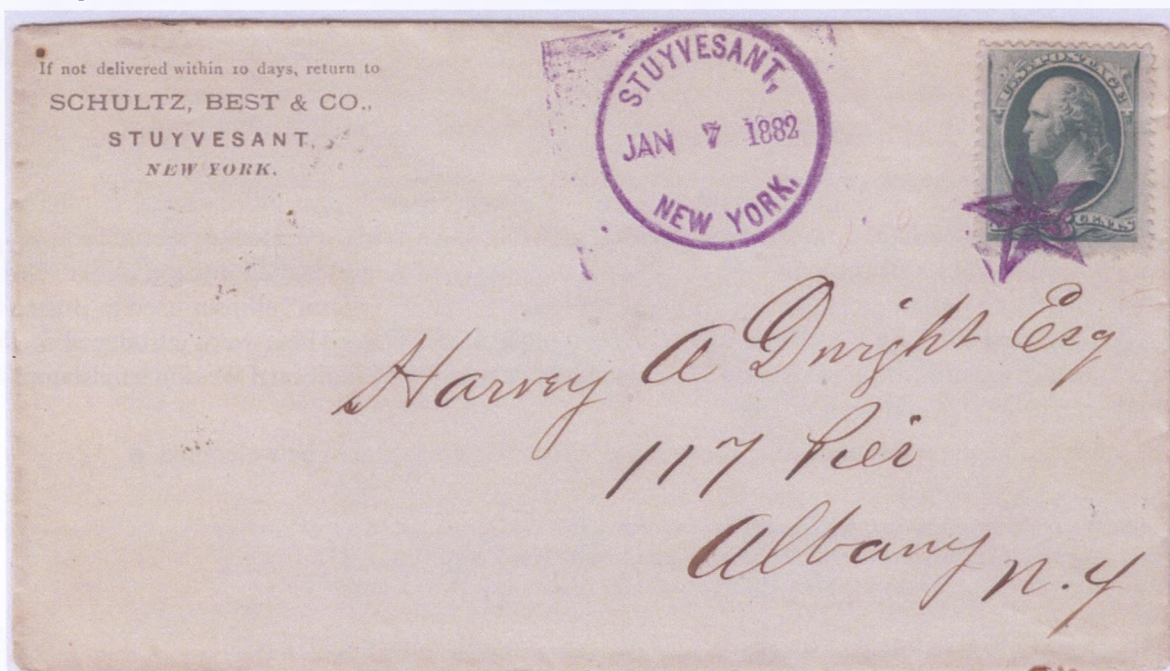 If not delivered within 10 days, return to
SCHULTZ, BEST & CO.,
STUYVESANT,
NEW YORK.
STUYVESANT,
JAN 7 1882
NEW YORK.
U.S. POSTAGE
CENTS
Harvey A Dwight Esq
117 Pier
Albany N.Y